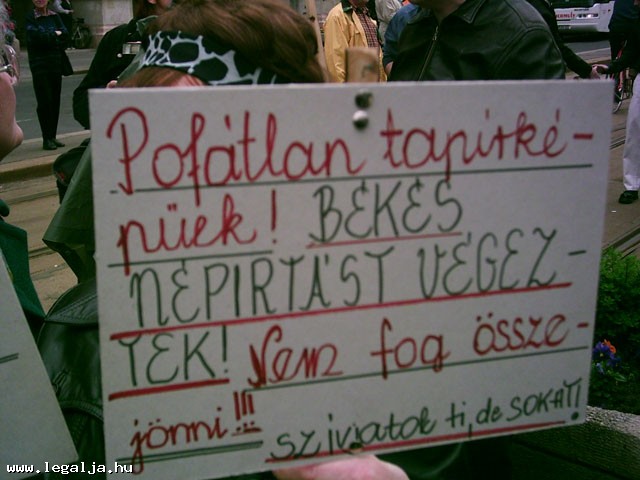 Pofátlan tapírké-
pűek! BÉKÉS
NÉPIRTÁST VÉGEZ-
TEK! Nem fog össze-
jönni!!!
szívjatok ti, de SOKAT!
www.legalja.hu